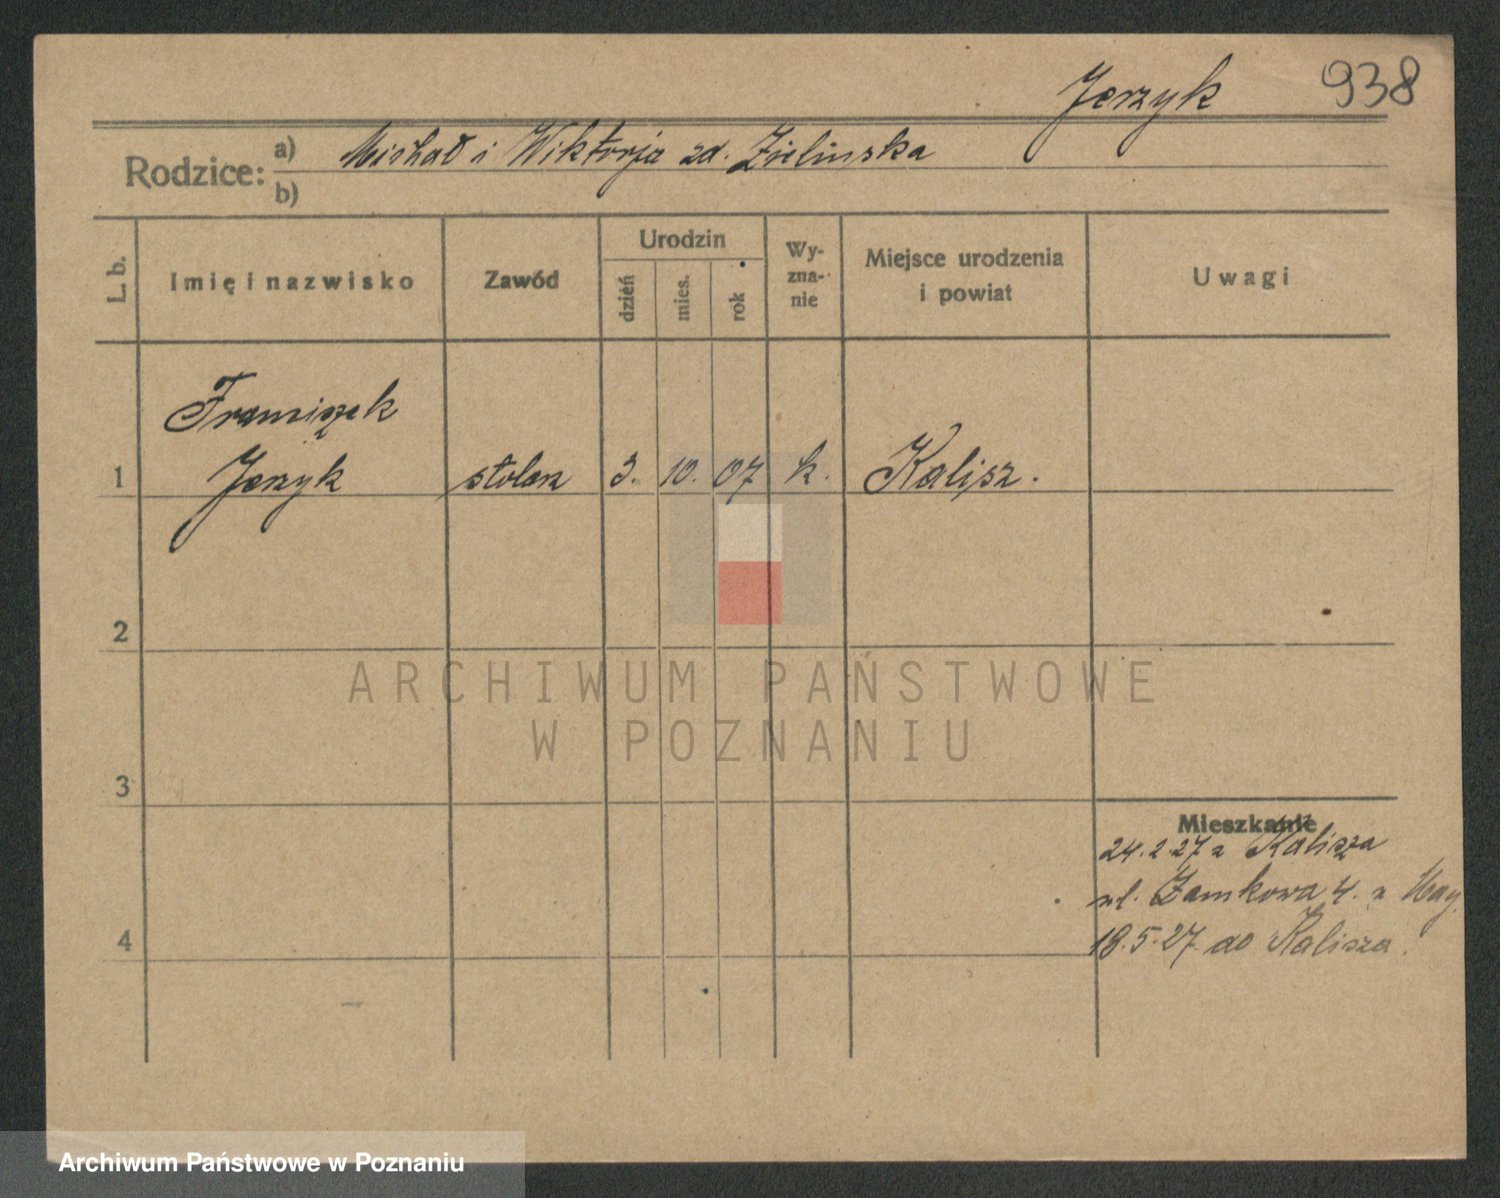 Jerzyk 938
Rodzice: a) Michał i Wiktorja zd. Zielinska
b)
L. b.
Imię i nazwisko
Zawód
Urodzin
dzień
mies.
rok
Wy-
zna-
nie
Miejsce urodzenia
i powiat
Uwagi
Franciszek
1 Jerzyk stolarz 3. 10. 07 k. Kalisz.
2
3
4
Mieszkanie
24.2.27 z Kalisza
ul. Zamkowa 4. u
18.5.27 do Kalisza.
ARCHIWUM PAŃSTWOWE
W POZNANIU
Archiwum Państwowe w Poznaniu